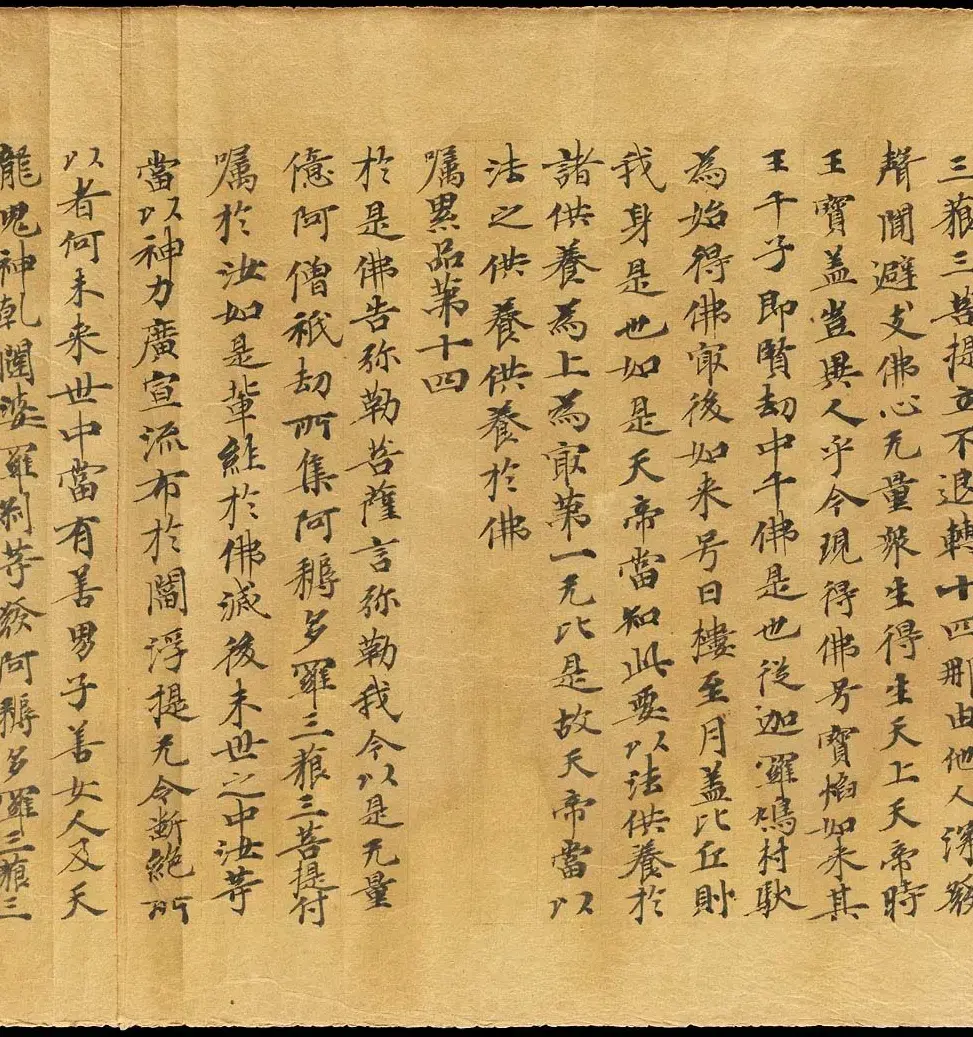 三藐三菩提立不退轉十四那由他人深發
聲聞辟支佛心无量眾生得生天上天帝時
王寶盖豈異人乎今現得佛号寶焰如来其
王千子即賢劫中千佛是也從迦羅鳩村馱
為始得佛冣後如来号曰樓至月盖比丘則
我身是也如是天帝當知此要以法供養於
諸供養為上為冣第一无比是故天帝當以
法之供養供養於佛
囑累品第十四
於是佛告弥勒菩薩言弥勒我今以是无量
億阿僧祇劫所集阿耨多羅三藐三菩提付
囑於汝如是輩經於佛滅後末世之中汝等
當以神力廣宣流布於閻浮提无令斷絕所
以者何未来世中當有善男子善女人及天
龍鬼神乾闥婆羅剎等發阿耨多羅三藐三